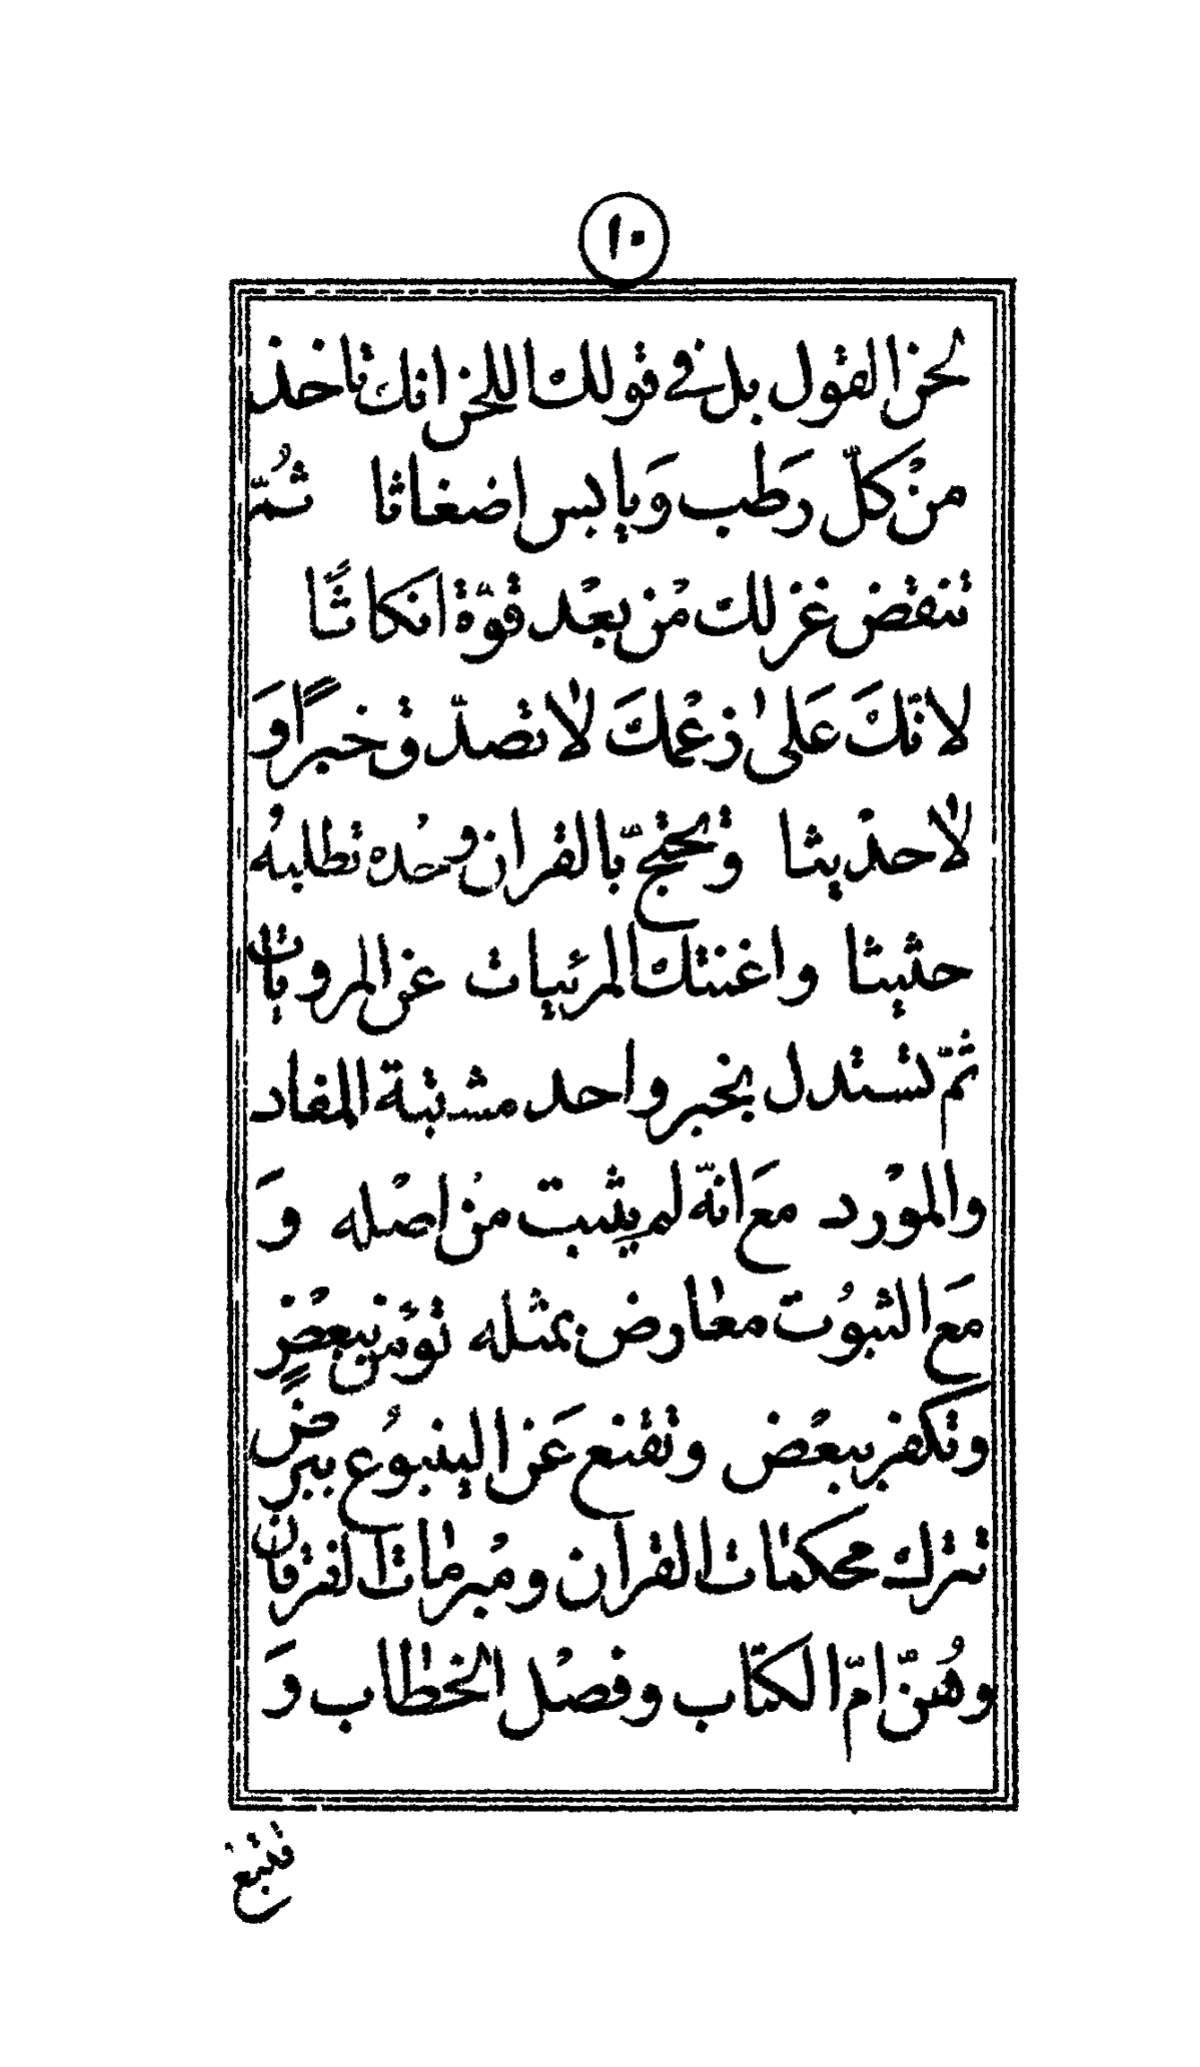 ١٠
لحن القول بل في قولك اللحن انك تاخذ
من كلّ رَطَب وَيابس اضغاثا ثُمّ
تنقض غزلك مْن بعْد قوّة انكاثًا
لانّكَ عَلىٰ زعْمكَ لاتصدّق خبرًا وَ
لاحديثا وتحتجّ بالقران وحْده تطلبهُ
حثيثا واغنتك المرئيات عن المرويات
ثمّ تستدل بخبر واحد مشتبة المفاد
والموْرد مَع انهّ لم يثبت من اصْله وَ
مَع الثبوُت معٰارض بمثله توْمن ببعْضٍ
وتكفر ببعْض وتقنع عَن الينبوُع ببرض
تترك محكمٰات القران ومْبرمٰات الفرقان
وهُنّ امّ الكتاب وفصْل الخطٰاب وَ
فتتبع